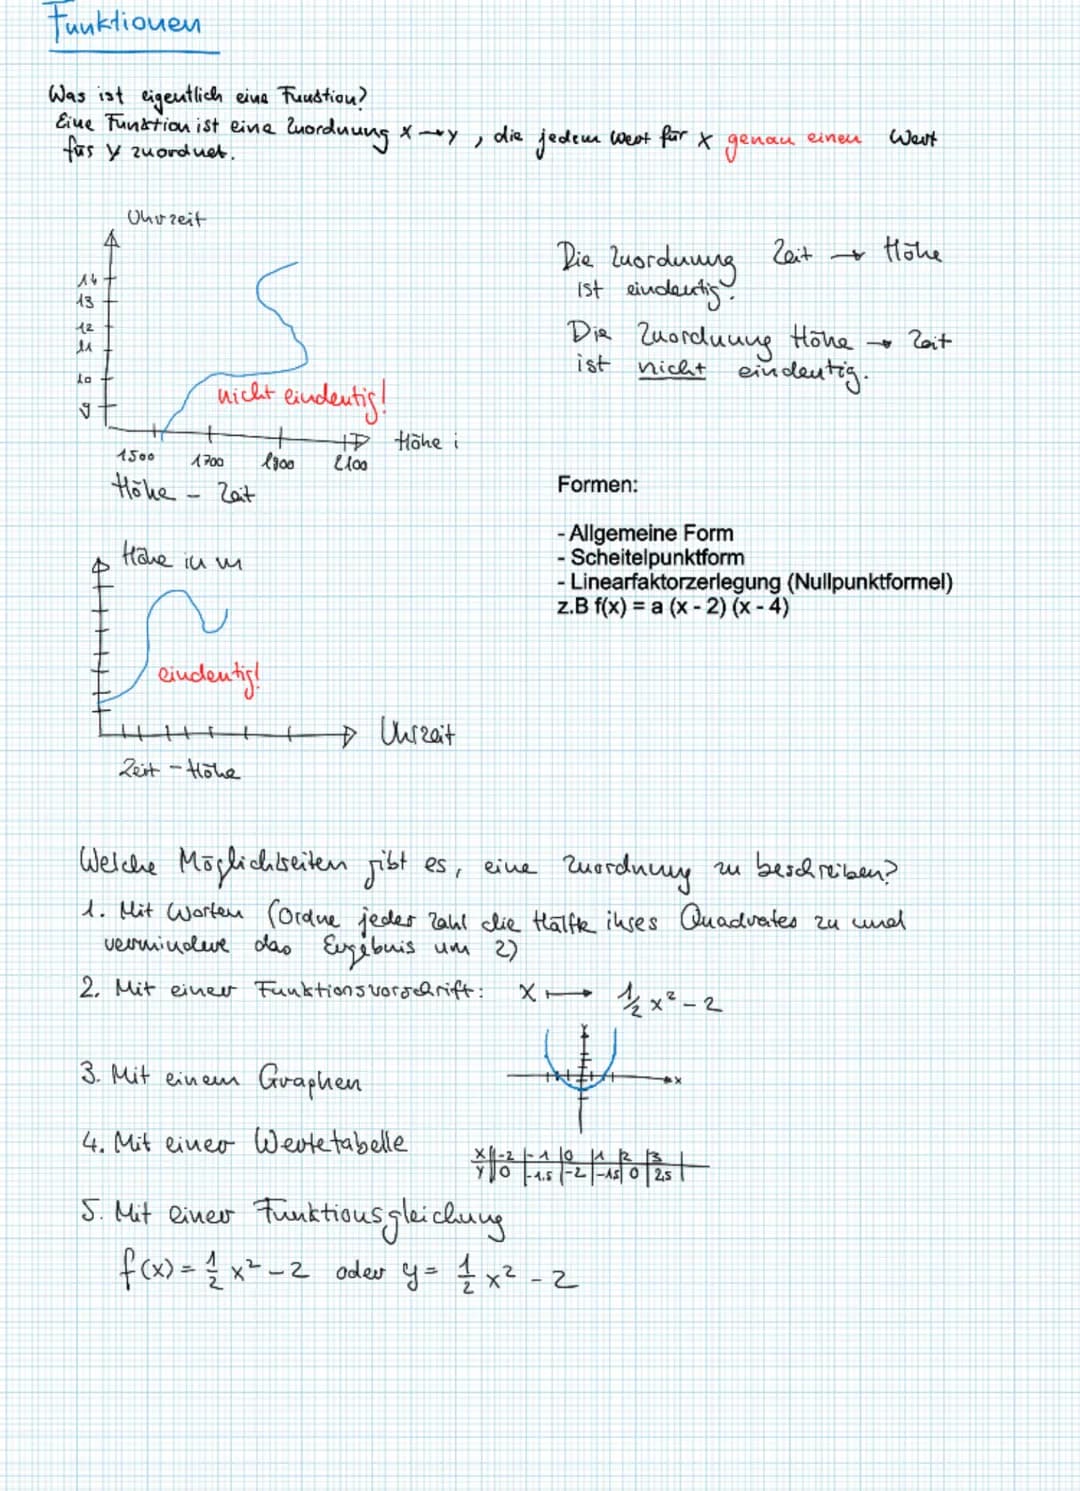 Funktionen
Was ist eigentlich eine Funktion?
Eine Funktion ist eine Zuordnung x → y, die jedem Wert für x genau einen Wert
für y zuordnet.
Uhrzeit
14
13
12
11
10
9
nicht eindeutig!
Höhe i
1500 1700 1900 2100
Höhe - Zeit
Die Zuordnung Zeit → Höhe
ist eindeutig.
Die Zuordnung Höhe → Zeit
ist nicht eindeutig.
Formen:
- Allgemeine Form
- Scheitelpunktform
- Linearfaktorzerlegung (Nullpunktformel)
z.B f(x) = a (x - 2) (x - 4)
Höhe in m
eindeutig!
Uhrzeit
Zeit - Höhe
Welche Möglichkeiten gibt es, eine Zuordnung zu beschreiben?
1. Mit Worten (Ordne jeder Zahl die Hälfte ihres Quadrates zu und
vermindere das Ergebnis um 2)
2. Mit einer Funktionsvorschrift: x ↦ 1/2 x² - 2
3. Mit einem Graphen
y
x
4. Mit einer Wertetabelle
x | -2 | -1 | 0 | 1 | 2 | 3
y | 0 | -1.5 | -2 | -1.5 | 0 | 2.5
5. Mit einer Funktionsgleichung
f(x) = 1/2 x² - 2 oder y = 1/2 x² - 2